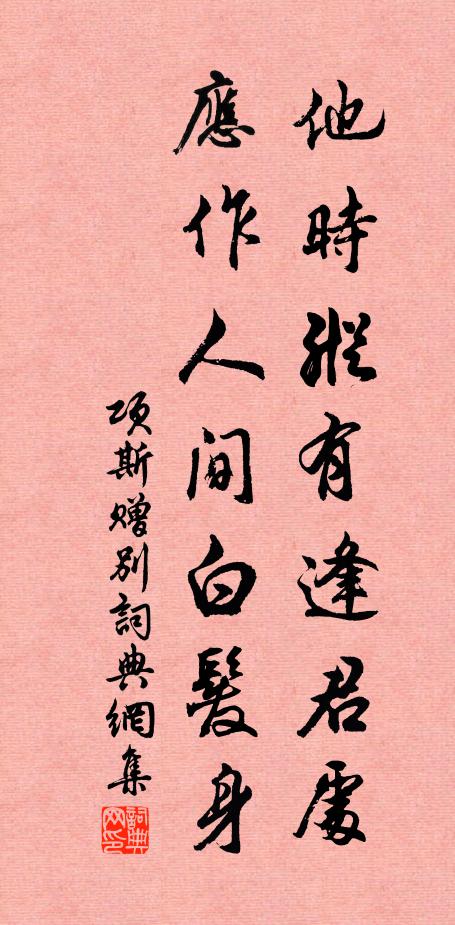 他時縱有逢君處
應作人間白髮身
項斯贈別詞典網集
詞典網印